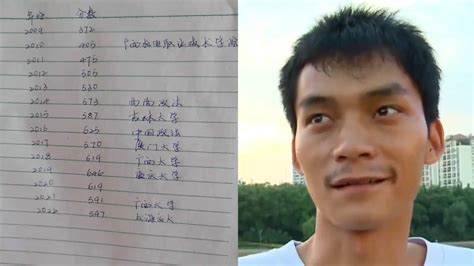 年份 分数
2009 372
2010 405 广西
2011 475
2012 505
2013 530
2014 573 西南政法
2015 587 吉林大学
2016 625 中国政法
2017 570 厦门大学
2018 619 广西大学
2019 646 重庆大学
2020 619
2021 591 广西大学
2022 597 上海交大